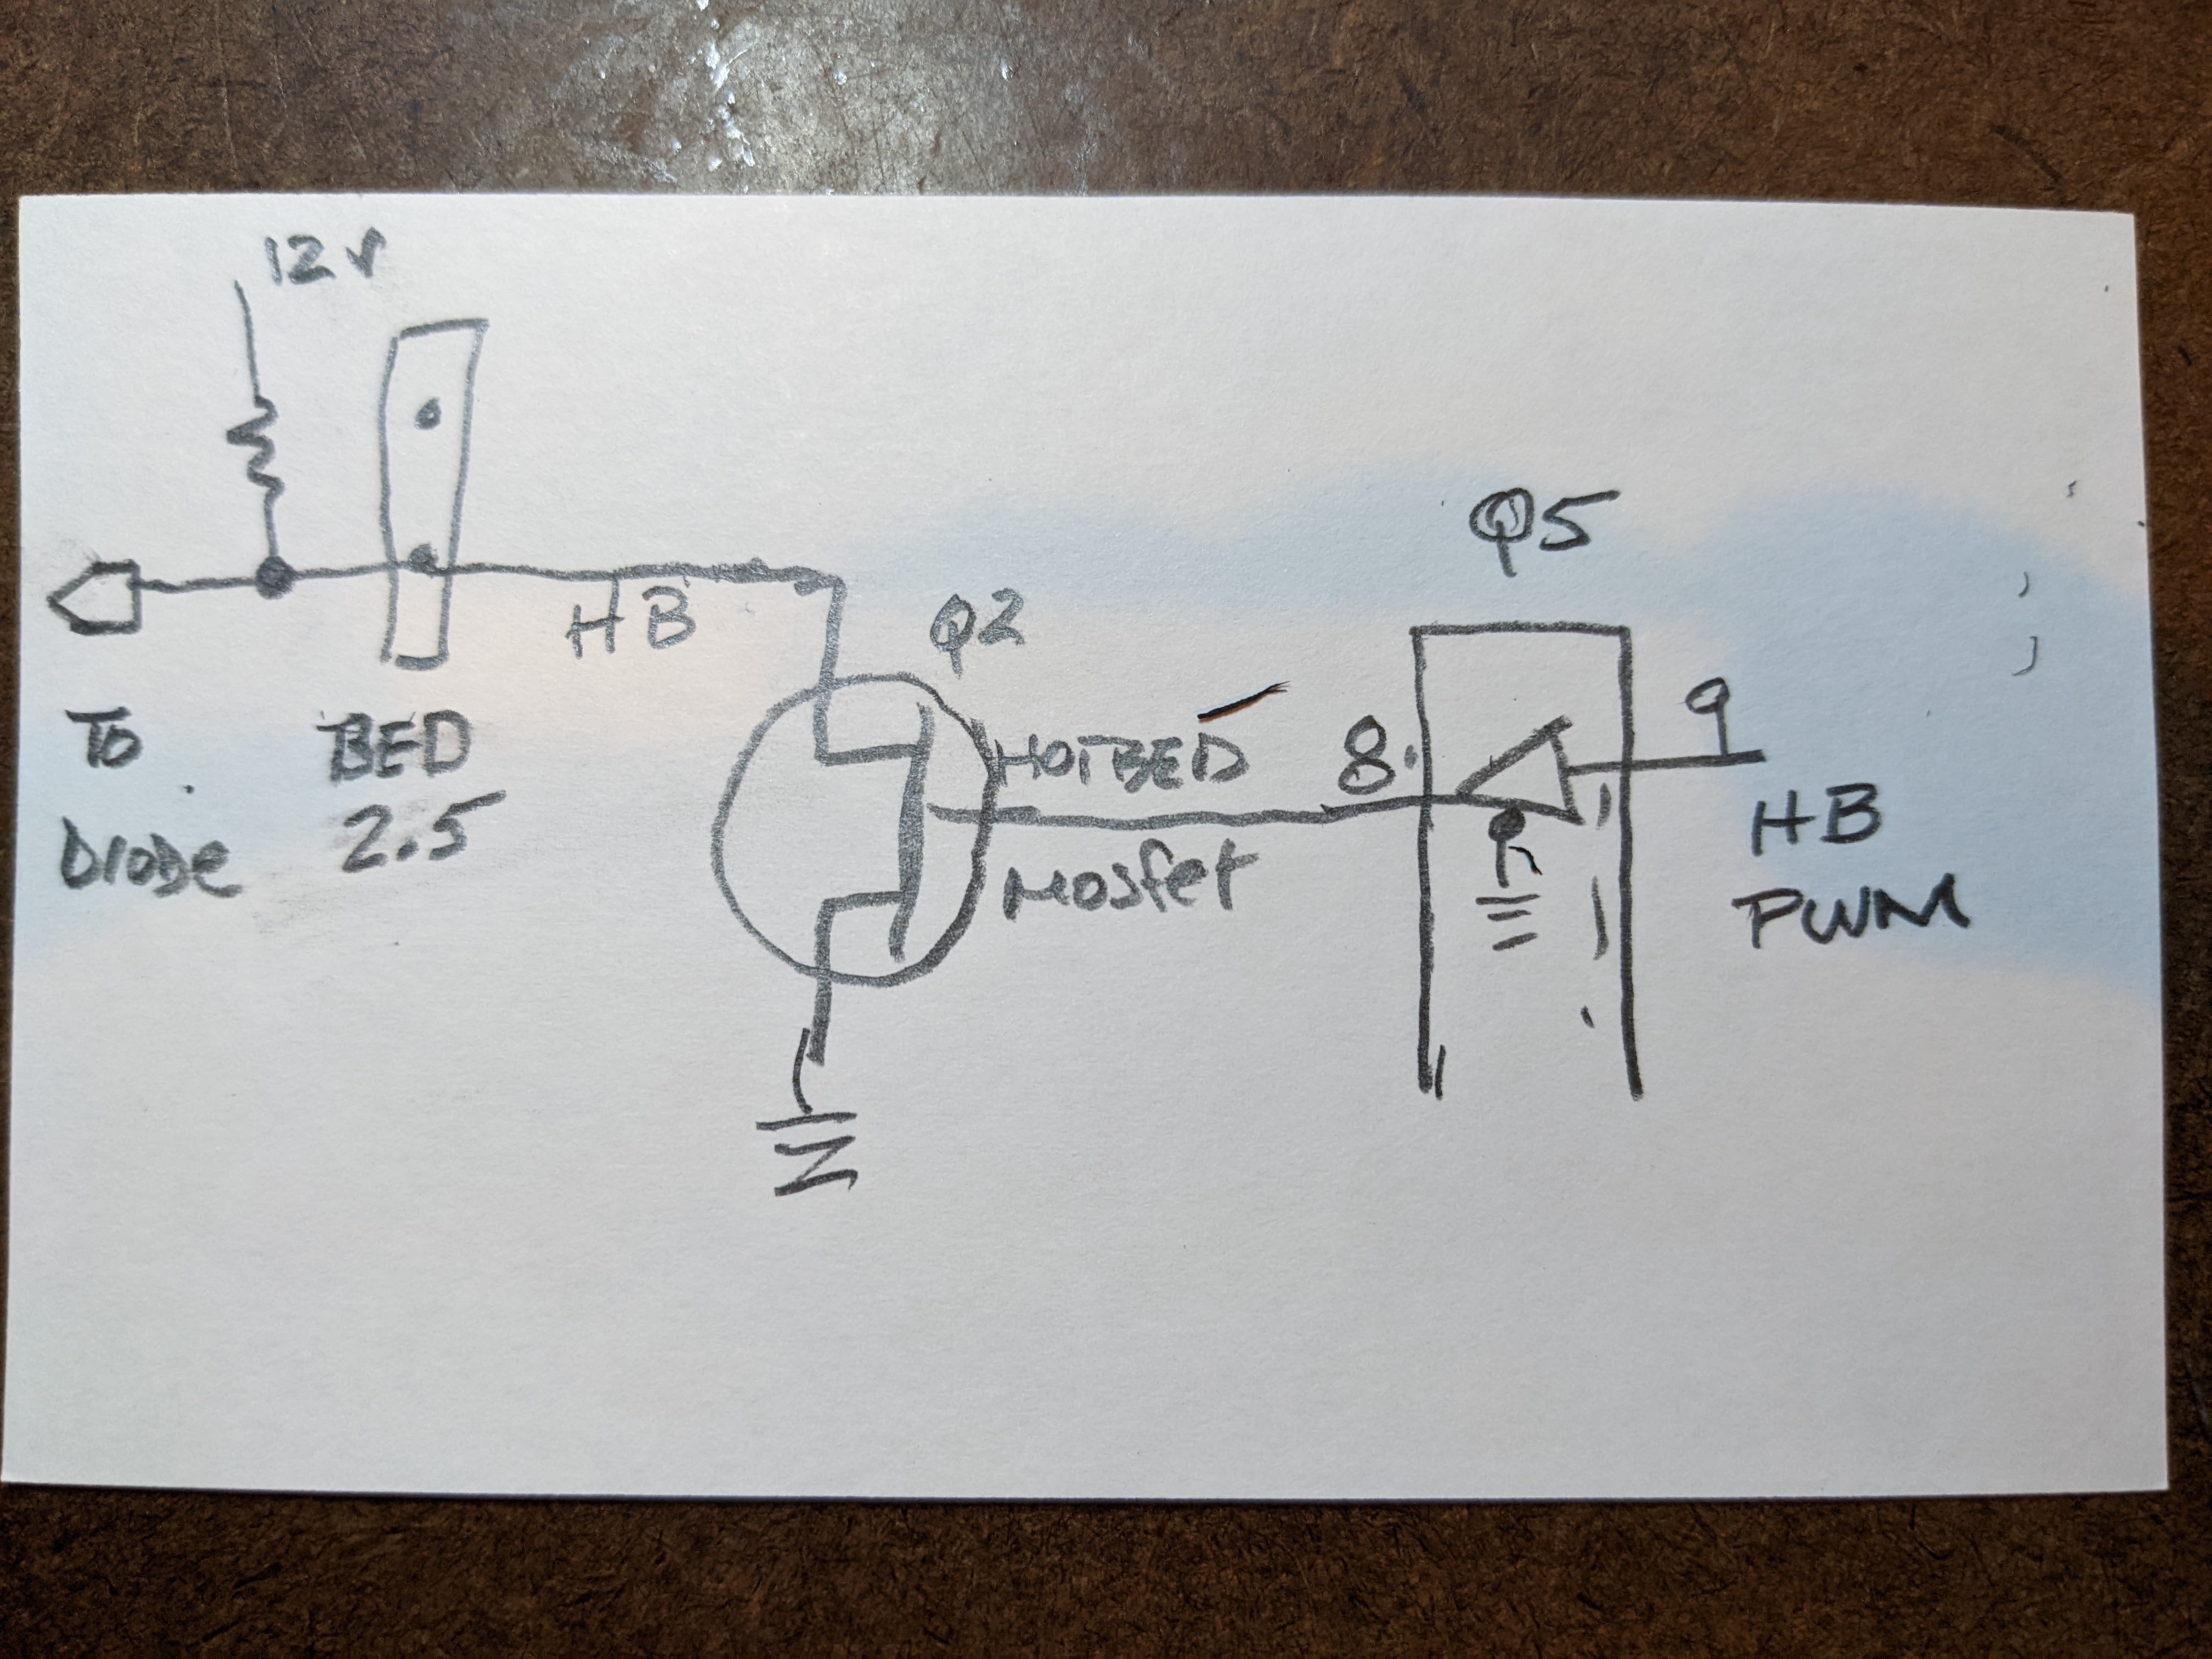 12V
Q5
HB
Q2
9
To
BED
HOTBED
8
HB
Diode
2.5
Mosfet
PWM